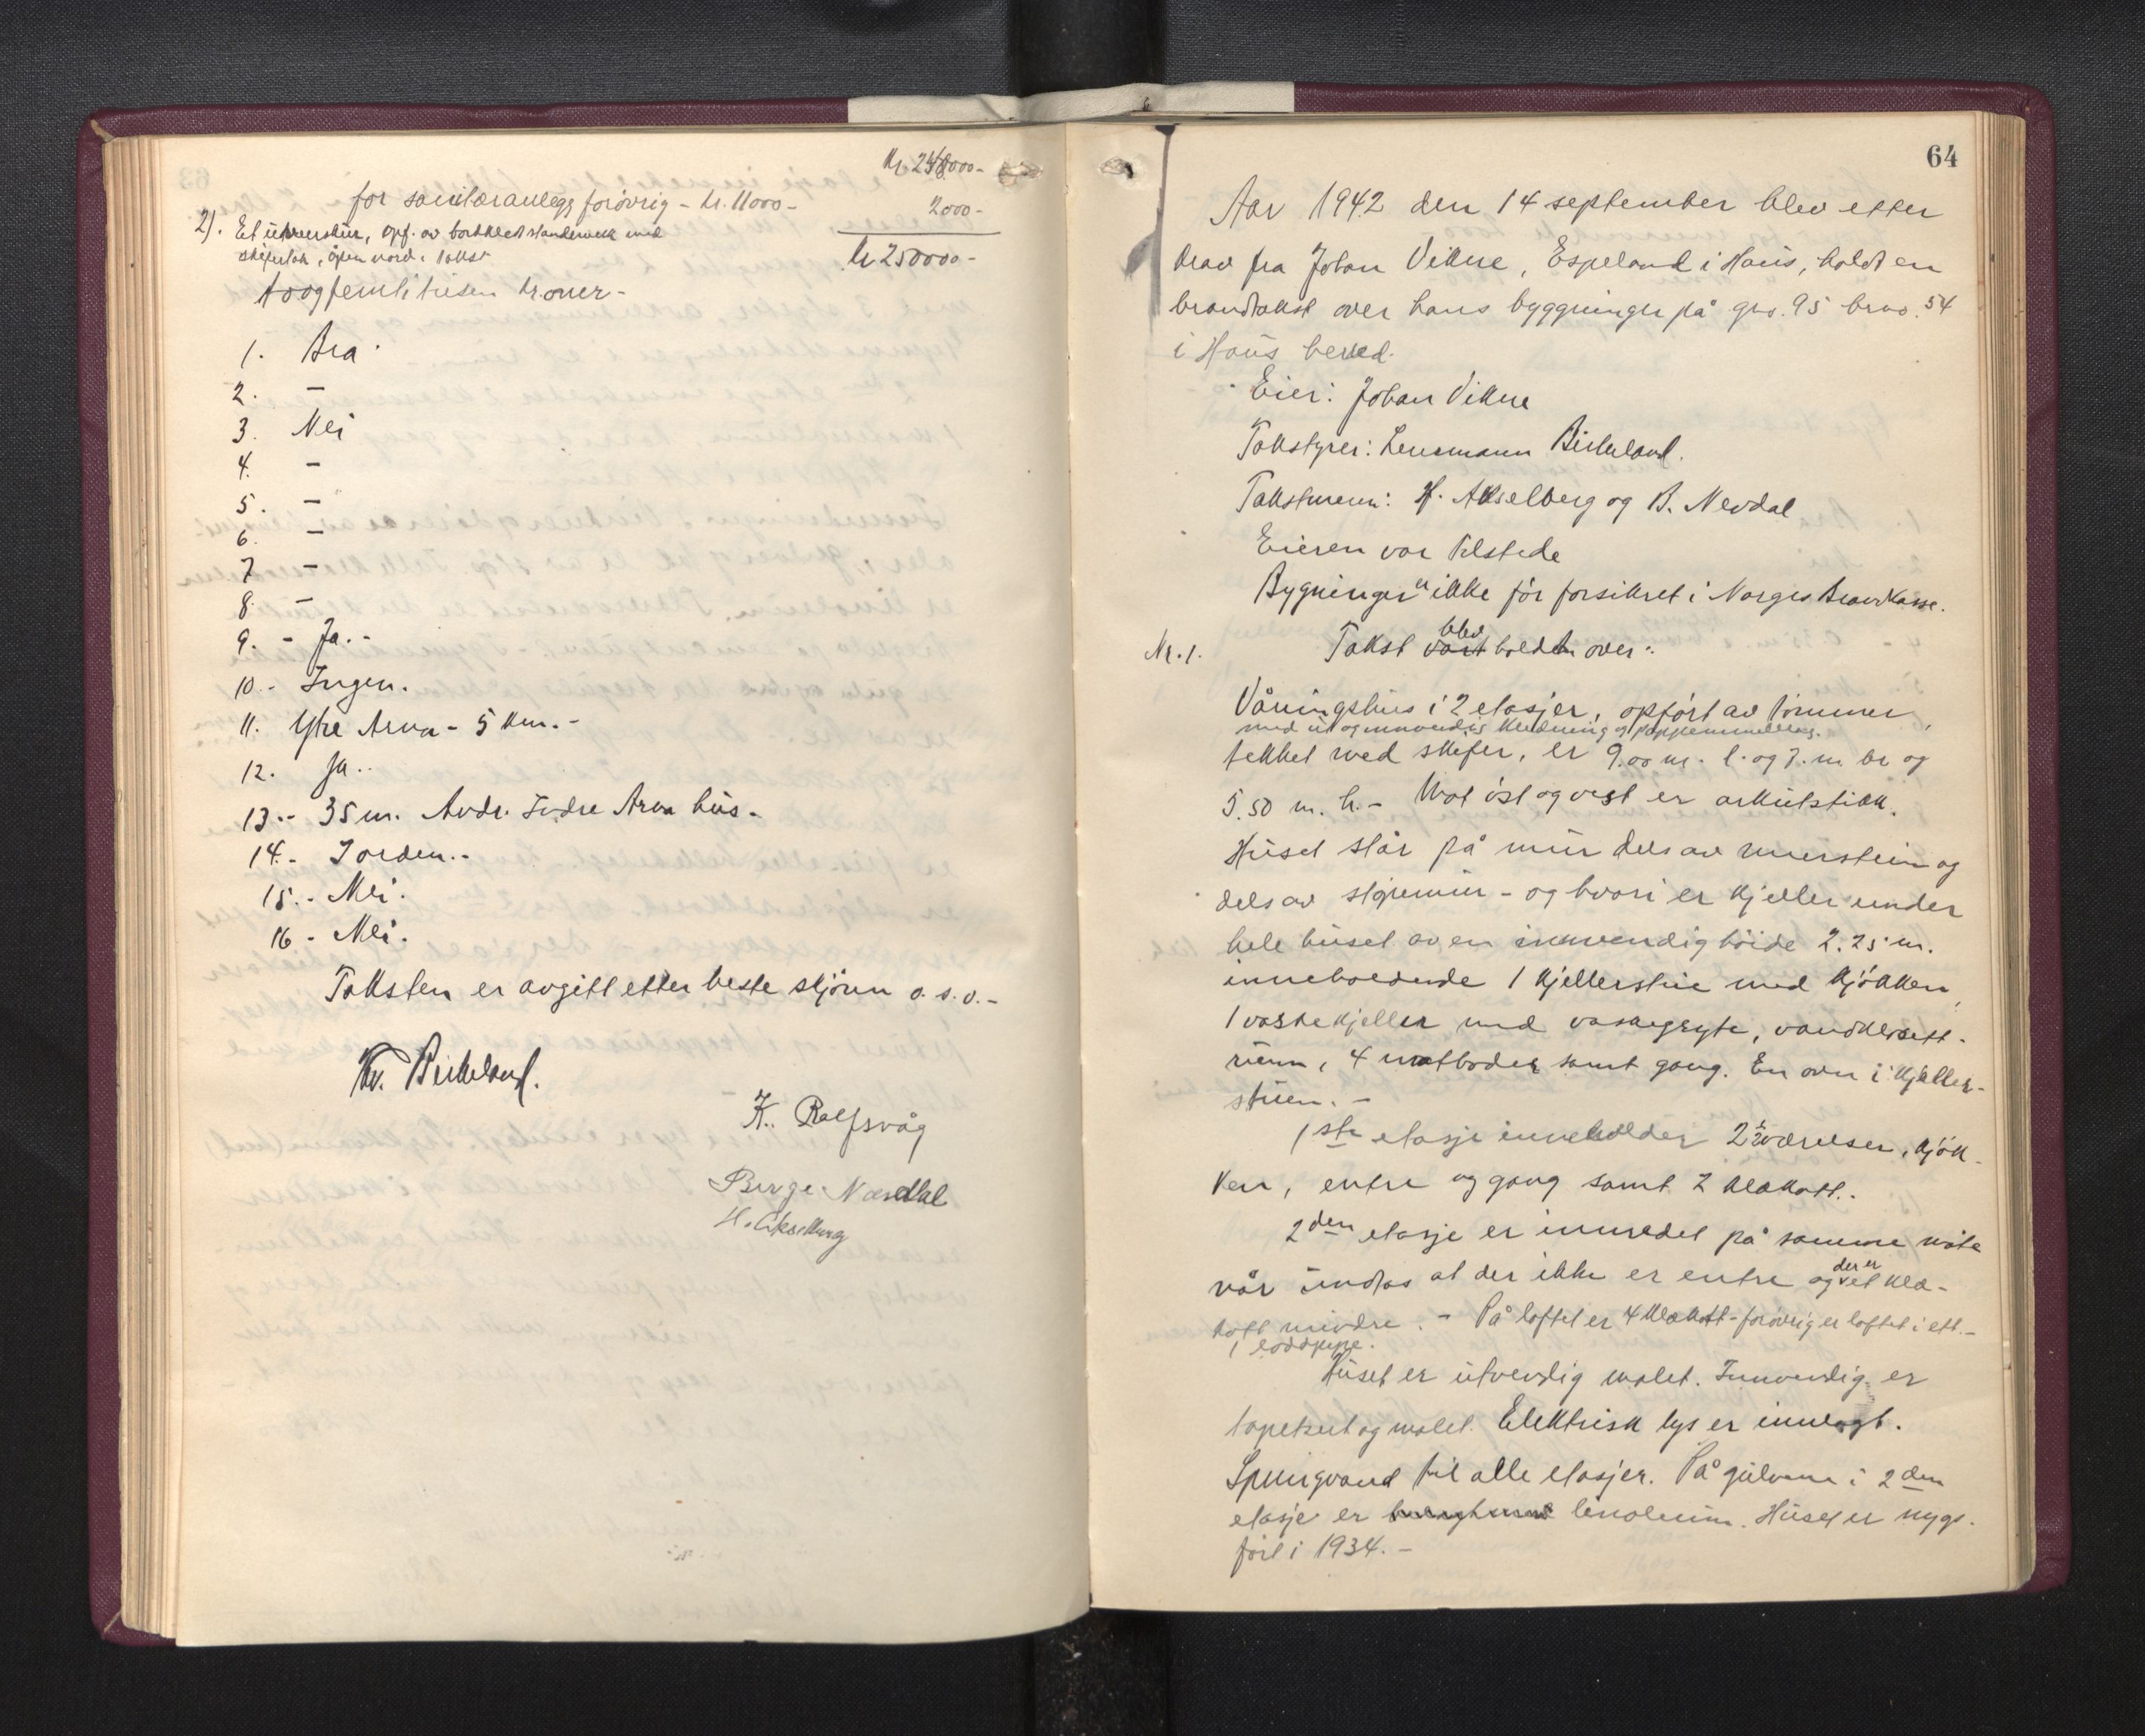 Kr 248000.-
for sanitæranlegg forøvrig - kr. 11000 -
2000.-
2). Et uthusskur, opf. av bordkledt standerverk med
skifertak, åpen nord. Takst
kr 250000.-
toogfemti tusen kroner -
1. Bra
2. —
3. Nei
4. —
5. —
6. —
7. —
8. —
9. - Ja. -
10. - Ingen.
11. Ytre Arna - 5 km. -
12. Ja..
13. - 35 m. Andr. Indre Arna hus -
14. - Jorden. -
15. - Nei.
16 - Nei.
Taksten er avgitt etter beste skjønn o. s. v. -
Kr. Birkeland.
K. Rolfsvåg
Birger Nævdal
H. Akselberg
64
Aar 1942 den 14 september blev etter
krav fra Johan Vikne, Espeland i Haus, holdt en
brandtakst over hans byggninger på gno. 95 brno. 54
i Haus herred.
Eier: Johan Vikne
Takstyrer: Lensmann Birkeland.
Takstmenn: H. Akselberg og B. Nevdal
Eieren var tilstede
Bygninger er ikke før forsikret i Norges Brandkasse.
Nr. 1. Takst vart blev holdt over:
Våningshus i 2 etasjer, opført av tømmer,
med ut og innvendig kledning og pappemmellag.
tekket med skifer, er 9.00 m. l. og 7. m. br og
5.50 m. h. - Mot øst og vest er arkutstikk.
Huset står på mur dels av murstein og
dels av støpemur - og hvori er kjeller under
hele huset av en innvendig høide 2.25 m.
inneholdende 1 kjellerstue med kjøkken,
1 vaskekjeller med vaskegryte, vandklosett-
rum, 4 matboder samt gang. En ovn i kjeller-
stuen. -
1ste etasje inneholder 2 værelser, kjøk-
ken, entre og gang samt 2 klekott. -
2den etasje er innredet på samme måte
når undtas at der ikke er entre og der er et kle-
kott mindre. - På loftet er 4 klekott - forøvrig er loftet i ett. -
Huset er utvendig malet. Innvendig er
tapetsert og malet. Elektrisk lys er innlagt.
Springvand til alle etasjer. På gulvene i 2den
etasje er linoleum. Huset er nyop-
ført i 1934. -